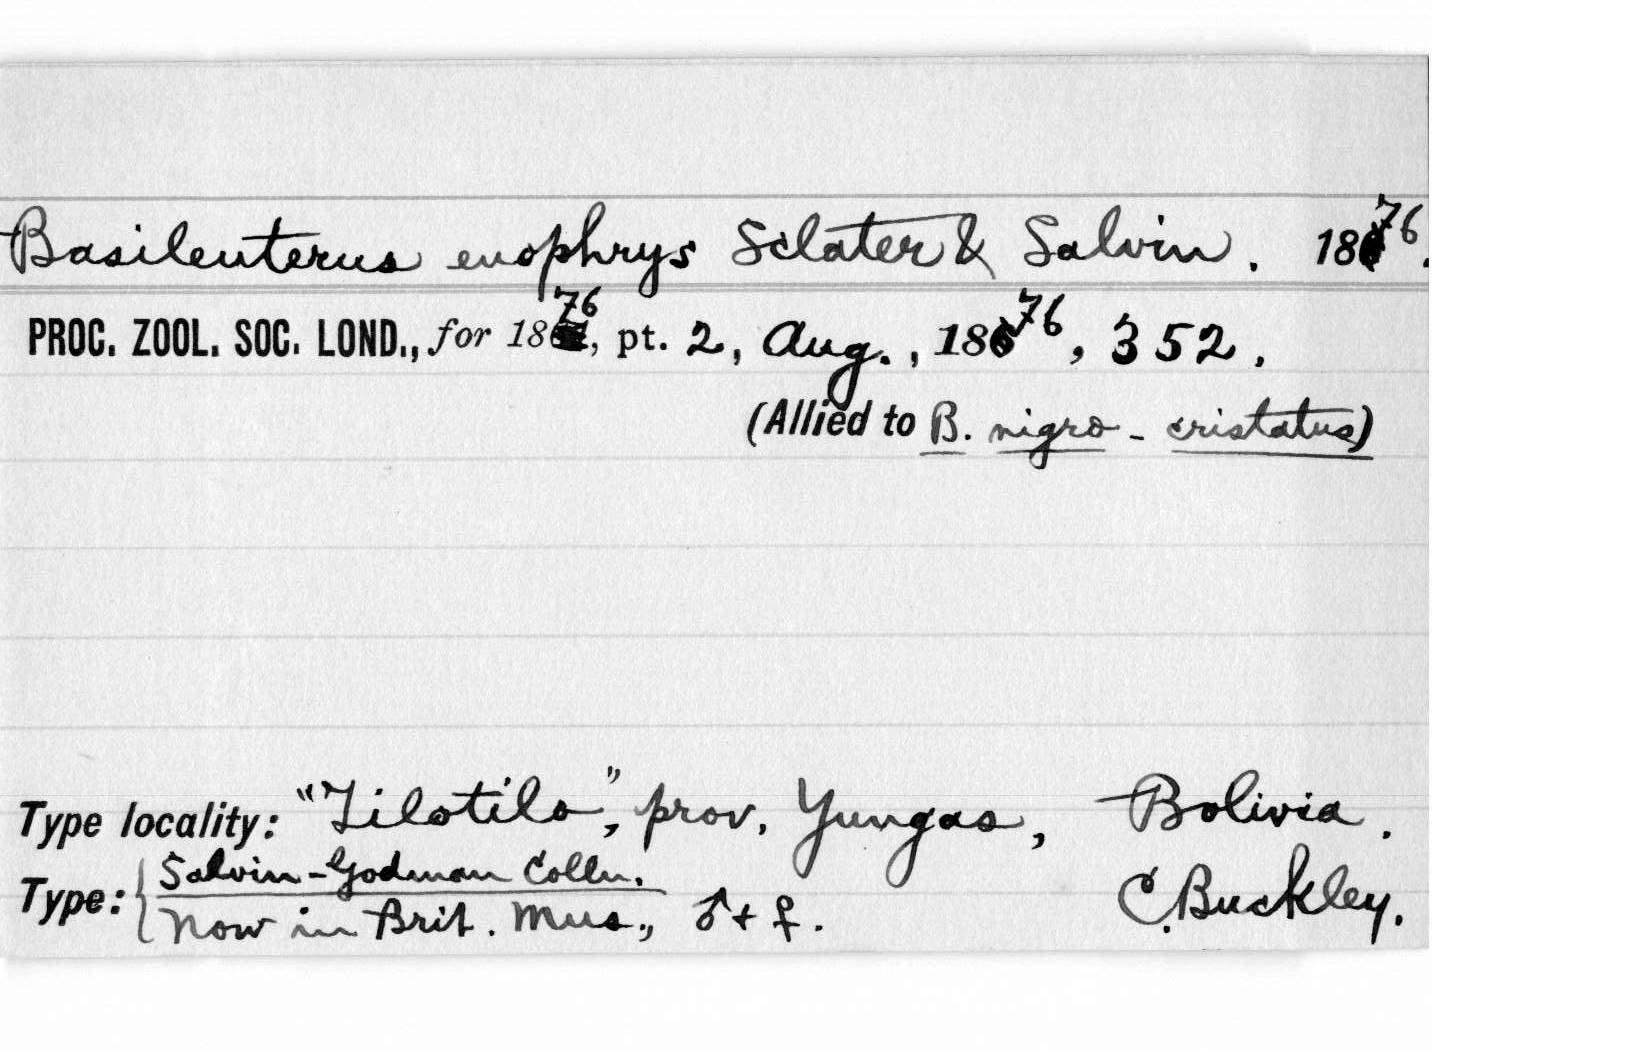 Basileuterus euophrys Sclater & Salvin. 1876.
PROC. ZOOL. SOC. LOND., for 1876, pt. 2, Aug., 1876, 352.
(Allied to B. nigro-cristatus)
Type locality: "Tilotilo", prov. Yungas, Bolivia.
Type: { Salvin-Godman Colln.
Now in Brit. Mus., ♂ + ♀. C. Buckley.